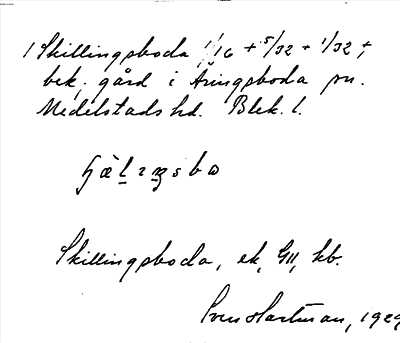 1 Skillingsboda 1/16 + 5/32 + 1/32 +,
bek. gård i Äringsboda sn.
Medelstads hd. Blek. l.
Skillingsboda, ek, GII, kb.
Sven Hartman, 1929